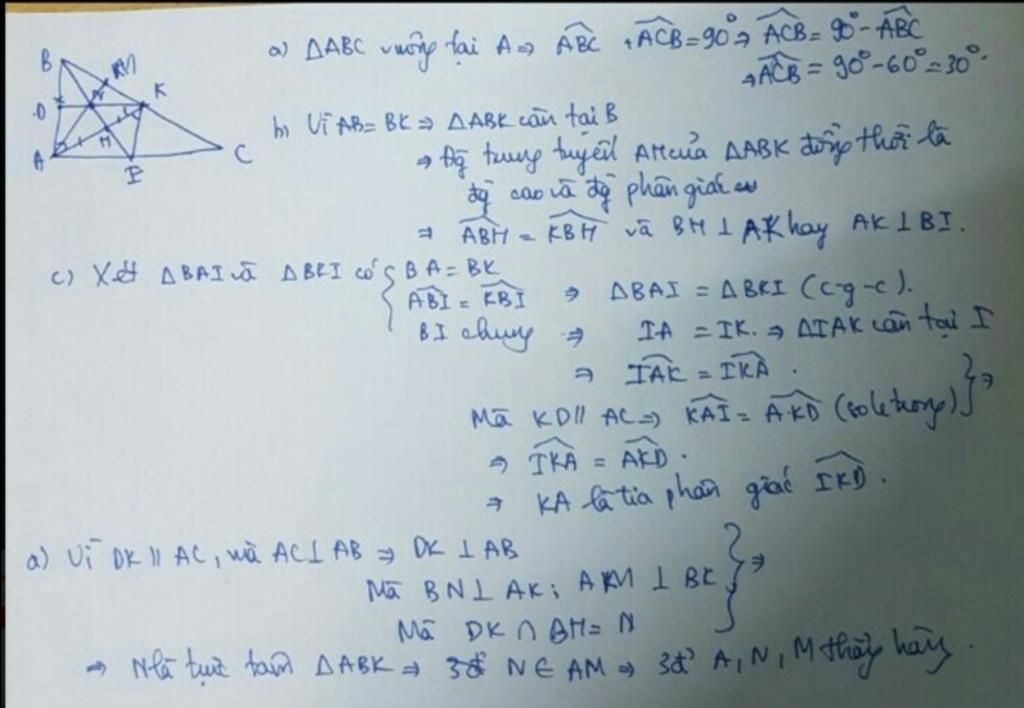 B
M
D
N
K
H
A
I
C
a) ΔABC vuông tại A ⇒ \widehat{ABC} + \widehat{ACB} = 90° ⇒ \widehat{ACB} = 90° - \widehat{ABC}
⇒ \widehat{ACB} = 90° - 60° = 30°.
b) Vì AB = BK ⇒ ΔABK cân tại B
⇒ đg trung tuyến AH của ΔABK đồng thời là
đg cao và đg phân giác
⇒ \widehat{ABH} = \widehat{KBH} và BH ⊥ AK hay AK ⊥ BI.
c) Xét ΔBAI và ΔBKI có { BA = BK
\widehat{ABI} = \widehat{KBI} ⇒ ΔBAI = ΔBKI (c-g-c).
BI chung ⇒ IA = IK. ⇒ ΔIAK cân tại I
⇒ \widehat{IAK} = \widehat{IKA}.
Mà KD // AC ⇒ \widehat{KAI} = \widehat{AKD} (so le trong) } ⇒
⇒ \widehat{IKA} = \widehat{AKD}.
⇒ KA là tia phân giác \widehat{IKD}.
a) Vì DK // AC, mà AC ⊥ AB ⇒ DK ⊥ AB
Mà BN ⊥ AK; AM ⊥ BK } ⇒
Mà DK ∩ BH = N
⇒ N là trực tâm ΔABK ⇒ 3đ' N ∈ AM ⇒ 3đ' A, N, M thẳng hàng.